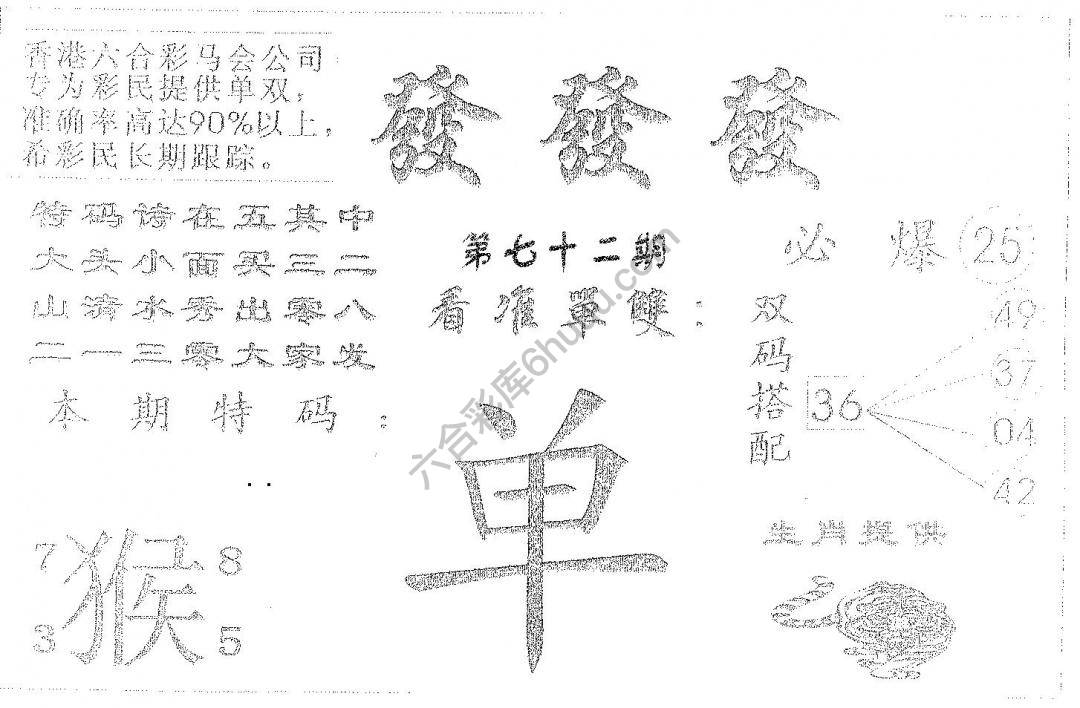 香港六合彩马会公司
专为彩民提供单双，
准确率高达90%以上，
希彩民长期跟踪。
發發發
特码诗在五其中
大头小面买三二
山清水秀出零八
二一三零大家发
本期特码：
7 猴 8
3 5
第七十二期
看准單雙：
单
必爆 25
双码搭配
36
49
37
04
42
生肖提供
六合彩库6huqu.com